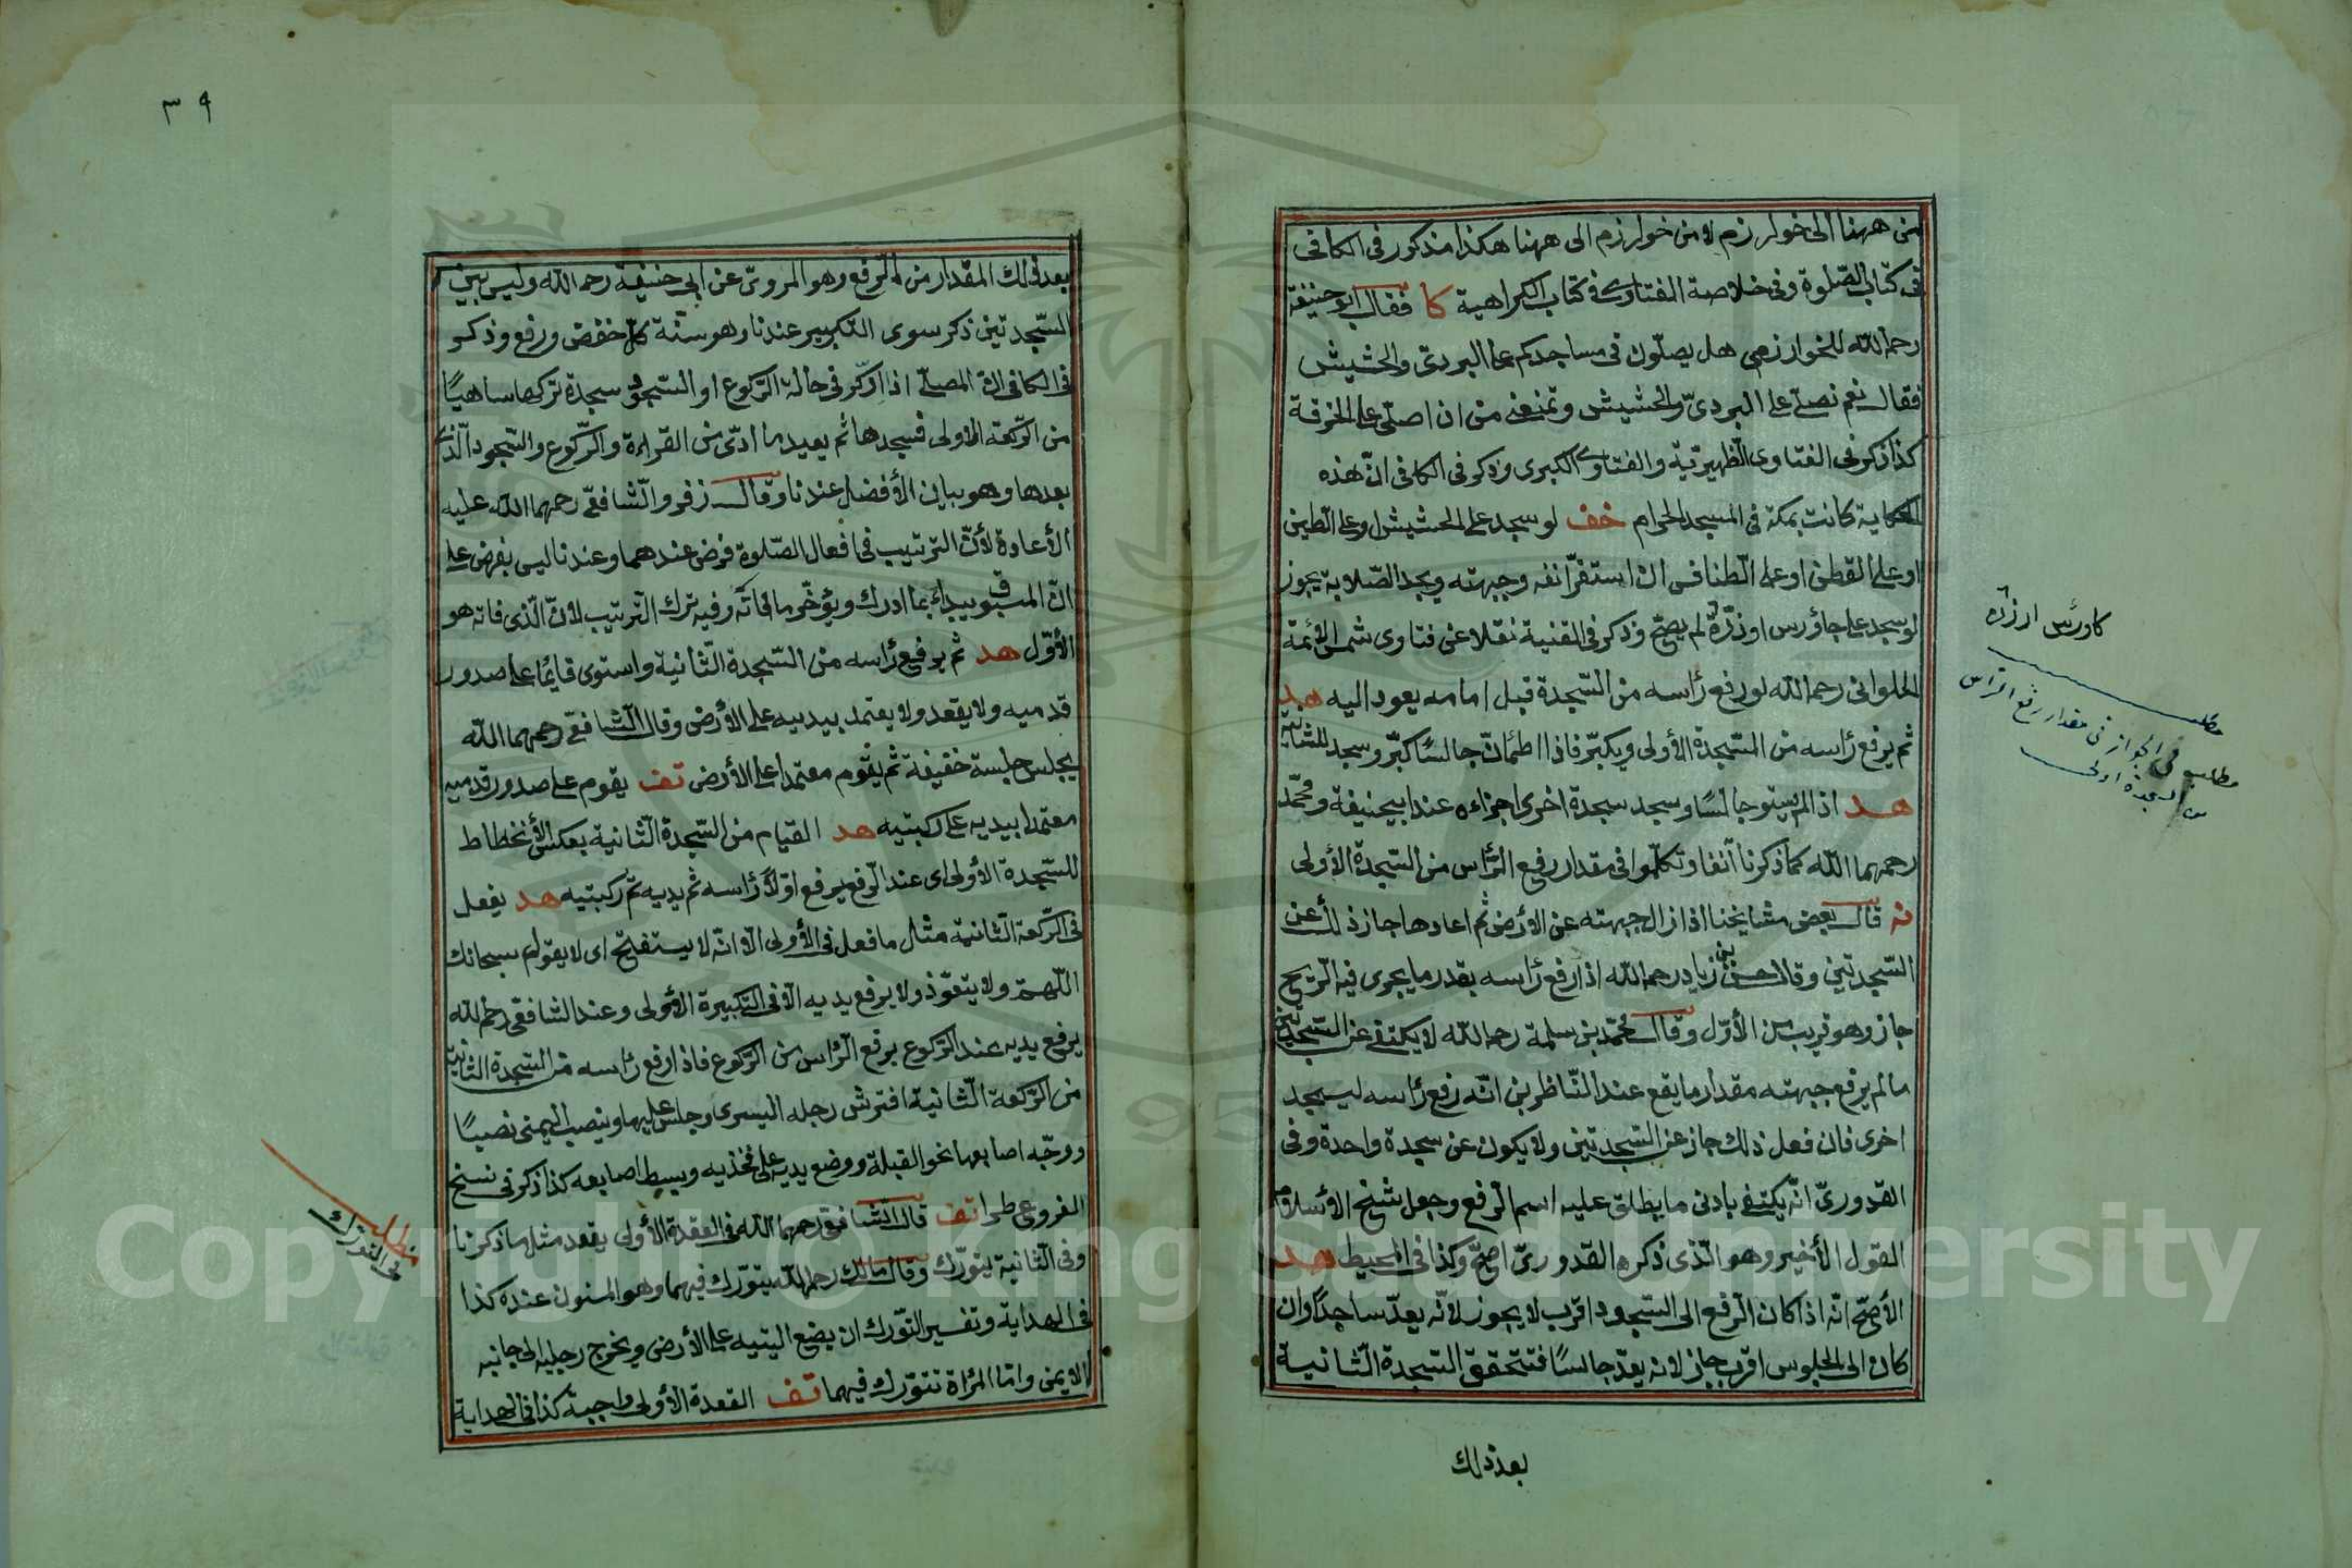 من ههنا الى خوارزم لا من خوارزم الى ههنا هكذا مذكور فى الكافى
فى كتاب الصّلوة وفى خلاصة الفتاوى فى كتاب الكراهية كا فقال ابو حنيفة
رحمه الله للخوارزمى هل يصلّون فى مساجدكم على البردىّ والحشيش
فقال نعم نصلّى على البردىّ والحشيش وتمنعنى من ان اصلّى على الخرقة
كذا ذكر فى الفتاوى الظهيريّة والفتاوى الكبرى وذكر فى الكافى انّ هذه
الحكاية كانت بمكة فى المسجد الحرام خف لو سجد على الحشيش او على الطين
او على القطن او على الطنافس ان استقرّ انفه وجبهته ويجد الصّلابة يجوز
لو سجد على جاؤرس او ذرّة لم يصحّ وذكر فى القنية نقلا عن فتاوى شمس الأئمة
الحلوانى رحمه الله لو رفع رأسه من السّجدة قبل امامه يعود اليه هد
ثم يرفع رأسه من السّجدة الأولى ويكبّر فاذا اطمأنّ جالسًا كبّر وسجد للثانية
هد اذا لم يستو جالسًا وسجد سجدة اخرى اجزاءه عند ابيحنيفة ومحمّد
رحمهما الله كما ذكرنا آنفا وتكلّموا فى مقدار رفع الرّأس من السّجدة الأولى
نه قال بعض مشايخنا اذا زال جبهته عن الأرض ثم اعادها جاز ذلك عن
السّجدتين وقال حسن بن زياد رحمه الله اذا رفع رأسه بقدر ما يجرى فيه الرّيح
جاز وهو قريب من الأوّل وقال محمّد بن سلمة رحمه الله لا يكتفى عن السّجدتين
ما لم يرفع جبهته مقدار ما يقع عند النّاظرين انّه رفع رأسه ليسجد
اخرى فان فعل ذلك جاز عن السّجدتين ولا يكون عن سجدة واحدة وفى
القدورىّ انّه يكتفى بادنى ما يطلق عليه اسم الرّفع وجعل شيخ الأسلام
القول الأخير وهو الّذى ذكره القدورىّ اصحّ وكذا فى المحيط هد
الأصحّ انّه اذا كان الرّفع الى السّجود اقرب لا يجوز لانّه يعدّ ساجدًا وان
كان الى الجلوس اقرب جاز لانه يعدّ جالسًا فتتحقق السّجدة الثّانية
بعد ذلك
كاورس ارزن
مطلب
مطلب فى الجواز فى مقدار رفع الرأس
من السجدة اولى
٣٩
بعد ذلك المقدار من الرّفع وهو المروىّ عن ابى حنيفة رحمه الله وليس بين
السّجدتين ذكر سوى التكبير عندنا وهو سنّة كلّ خفض ورفع وذكر
فى الكافى انّ المصلّى اذا ذكر فى حالة الرّكوع او السّجود سجدة تركها ساهيًا
من الرّكعة الاولى فسجدها ثم يعيد ما ادّى من القراءة والرّكوع والسّجود الّذى
بعدها وهو بيان الأفضل عندنا وقال زفر والشّافعىّ رحمهما الله عليه
الأعادة لأنّ الترتيب فى افعال الصّلوة فرض عندهما وعندنا ليس بفرض على
انّ المسبوق يبداء بما ادرك ويؤخّر ما فاته وفيه ترك الترتيب لانّ الّذى فاته هو
الأوّل هد ثم يرفع رأسه من السّجدة الثّانية واستوى قايمًا على صدور
قدميه ولا يقعد ولا يعتمد بيديه على الأرض وقال الشّافعى رحمهما الله
يجلس جلسة خفيفة ثم يقوم معتمدا على الأرض تف يقوم على صدور قدميه
معتمدا بيديه على ركبتيه هد القيام من السّجدة الثّانية بعكس الأنحطاط
للسّجدة الأولى اى عند الرّفع يرفع اوّلاً رأسه ثم يديه ثم ركبتيه هد يفعل
فى الرّكعة الثّانية مثل ما فعل فى الأولى الّا انّه لا يستفتح اى لا يقول سبحانك
اللّهمّ ولا يتعوّذ ولا يرفع يديه الّا فى التّكبيرة الأولى وعند الشافعى رحمه الله
يرفع يديه عند الرّكوع برفع الرّاس من الرّكوع فاذا رفع رأسه من السّجدة الثّانية
من الرّكعة الثّانية افترش رجله اليسرى وجلس عليها وينصب اليمنى نصبًا
ووجّه اصابعها نحو القبلة ووضع يديه على فخذيه وبسط اصابعه كذا ذكر فى نسخ
الفروع طرا تف قال الشّافعىّ رحمهما الله فى القعدة الأولى يقعد مثل ما ذكرنا
وفى الثّانية يتورّك وقال مالك رحمه الله يتورّك فيهما وهو المسنون عنده كذا
فى الهداية وتفسير التّورّك ان يضع اليتيه على الأرض ويخرج رجليه الى جانبه
الايمن وامّا المرأة تتورّك فيهما تف القعدة الأولى واجبة كذا فى الهداية
مطلب
فى التورّك
Copyright © King Saud University